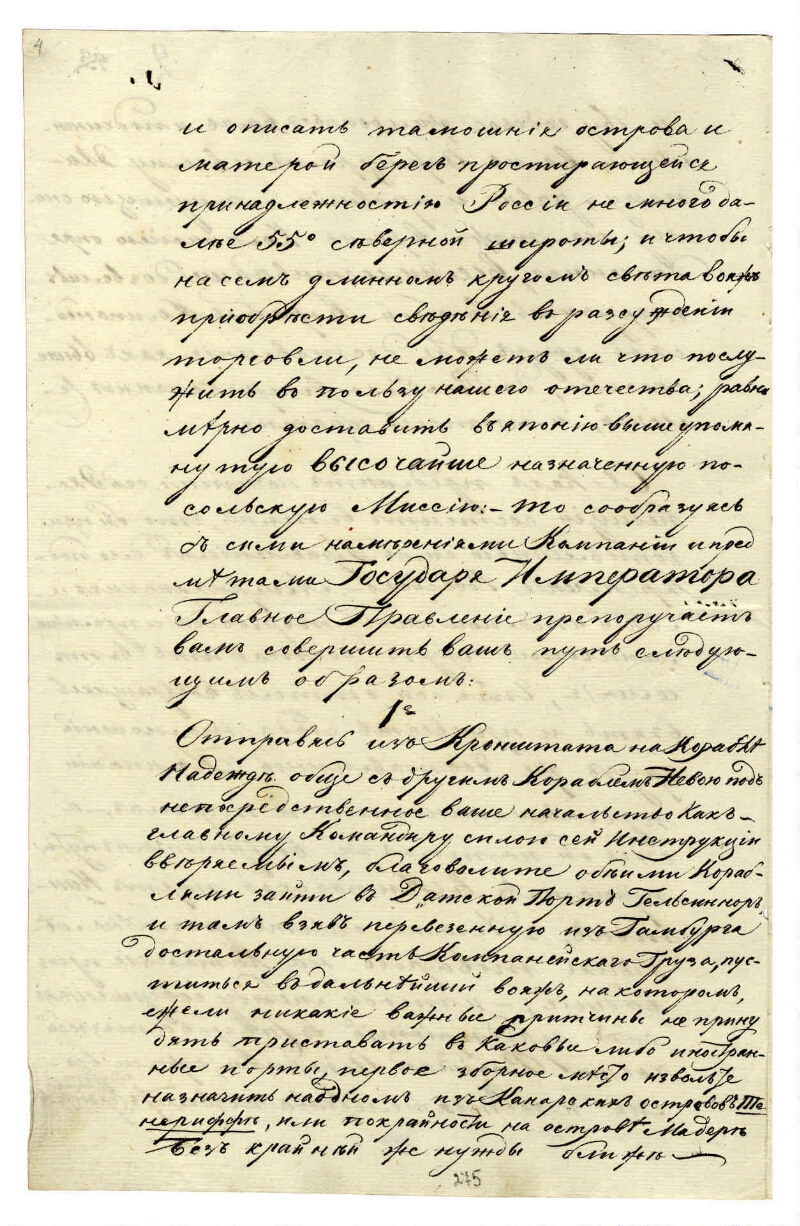 4
и описать тамошніе острова и
матерой берегъ простирающейся
принадлежностію Россіи не много да-
лѣе 55° сѣверной широты; и чтобы
на семъ длинномъ кругомъ свѣта вояжѣ
пріобрѣсти свѣденіе въ разсужденіи
торговли, не можетъ ли что послу-
жить въ пользу нашего отечества; равно
мѣрно доставить въ японію выше упомя-
нутую высочайше назначенную по-
сольскую Миссію:- то сообразуясь
съ сими намѣреніями Компаніи и пред
мѣтами Государя Императора
Главное Правленіе препоручаетъ
вамъ совершить вашъ путь слѣдую-
щимъ образомъ:
1е
Отправясь изъ Кронштата на Кораблѣ
Надеждѣ обще съ другимъ Кораблемъ Невою подъ
непосредственное ваше начальство какъ-
главному Командиру силою сей Инструкціи
ввѣряемымъ, благоволите обѣими Кораб-
лями зайти въ Датской Портъ Гельсинноръ,
и тамъ взявъ перевезенную изъ Гамбурга
достальную часть Компанейскаго Груза, пус-
титься въ дальнѣйший вояжъ, на которомъ,
ежели никакіе важные притчины не прину
дятъ приставать въ каковые либо иностран-
ные порты, первое зборное мѣсто извольте
назначить на одномъ изъ Канарскихъ острововъ Те-
нериффѣ, или покрайности на островѣ Мадерѣ
Безъ крайнѣй же нужды ближе
275